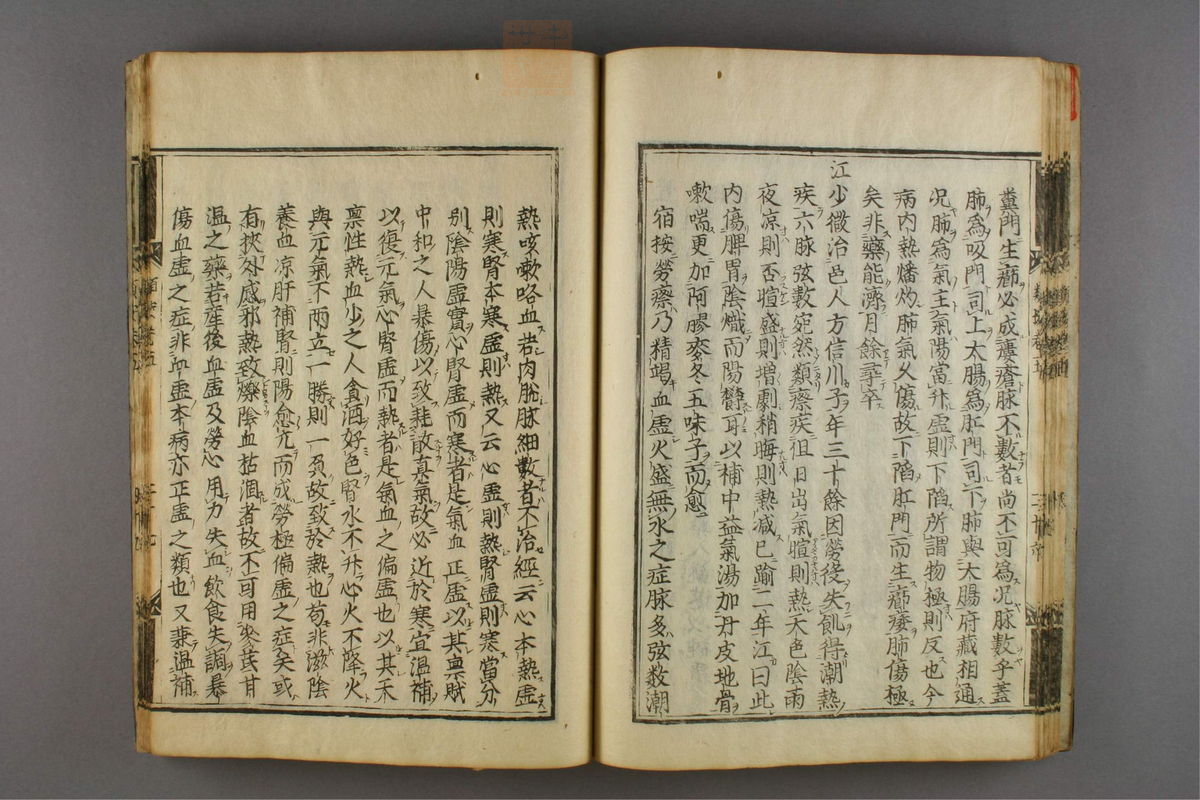 糞門生癤必成瘻瘡脉不數者尚不可為况脉數乎蓋
肺為吸門司上大腸為肛門司下肺與大腸府藏相通
况肺為氣主氣陽富升虛則下陷所謂物極則反也今
病内熱燔灼肺氣久傷故下陷肛門而生癤痿肺傷極
矣非藥能濟月餘尋卒
江少微治邑人方信川子年三十餘因勞役失飢得潮熱
疾六脉弦數宛然類瘵疾但日出氣暄則熱天色陰雨
夜凉則否暄盛則增劇稍晦則熱减已踰二年江曰此
内傷脾胃陰熾而陽欝耳以補中益氣湯加丹皮地骨
嗽喘更加阿膠麥冬五味子而愈
宿按勞瘵乃精竭血虛火盛無水之症脉多弦数潮
熱咳嗽咯血若肉脱脉細數者不治經云心本熱虛
則寒腎本寒虛則熱又云心虛則熱腎虛則寒當分
別陰陽虛實心腎虛而寒者是氣血正虛以其禀賦
中和之人暴傷以致耗散真氣故必近於寒宜溫補
以復元氣心腎虛而熱者是氣血之偏虛也以其禾
禀性熱血少之人貪酒好色腎水不升心火不降火
與元氣不两立一勝則一負故致於熱也苟非滋陰
養血凉肝補腎則陽愈亢而成勞極偏虛之症矣或
有挾外感邪熱致爍陰血枯涸者故不可用參芪甘
溫之藥若産後血虛及勞心用力失血飲食失調暴
傷血虛之症非血虛本病亦正虛之類也又兼溫補